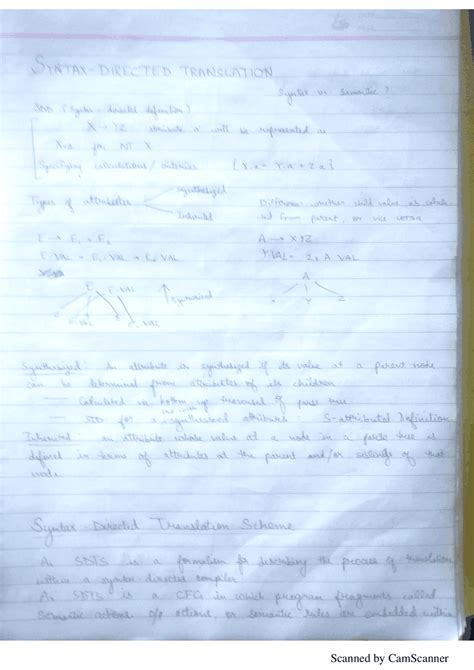 SYNTAX-DIRECTED TRANSLATION
Syntax vs Semantic?
SDD (Syntax-directed definition)
X → YZ attribute a will be represented as
X.a for NT X
Specifying calculations / criteria {X.a = Y.a + Z.a}
Types of attributes
Synthesized
Inherited
Difference: whether child value is
from parent, or vice versa
E → E1 + E2
E.VAL = E1.VAL + E2.VAL
A → XYZ
Y.VAL = A.VAL
E
E.VAL
E.VAL
Synthesized
A
X Y Z
Synthesized: An attribute is synthesized if its value at a parent node
can be determined from attributes of its children
— Calculated via bottom up traversal of parse tree
— SDD for synthesized attributes: S-attributed Definition
Inherited: an attribute whose value at a node in a parse tree is
defined in terms of attributes at the parent and/or siblings of that
node.
Syntax-Directed Translation Scheme
An SDTS is a formalism for describing the process of translation
within a syntax directed compiler
An SDTS is a CFG in which program fragments called
semantic actions, or semantic rules are embedded within
Scanned by CamScanner